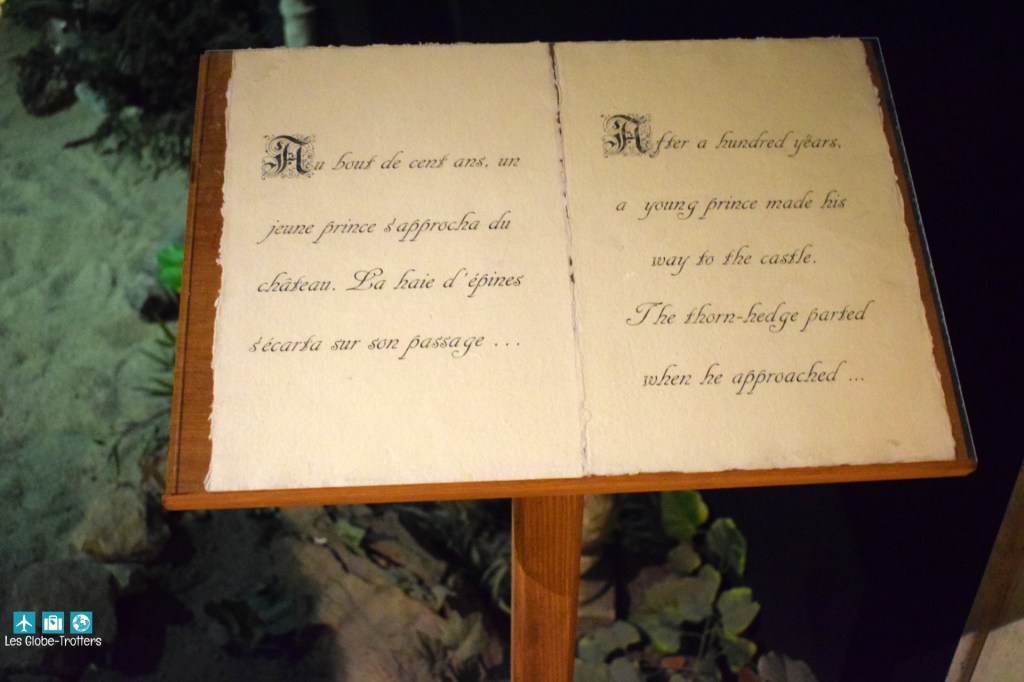 Au bout de cent ans, un
jeune prince s'approcha du
château. La haie d'épines
s'écarta sur son passage ...
After a hundred years,
a young prince made his
way to the castle.
The thorn-hedge parted
when he approached ...
Les Globe-Trotters